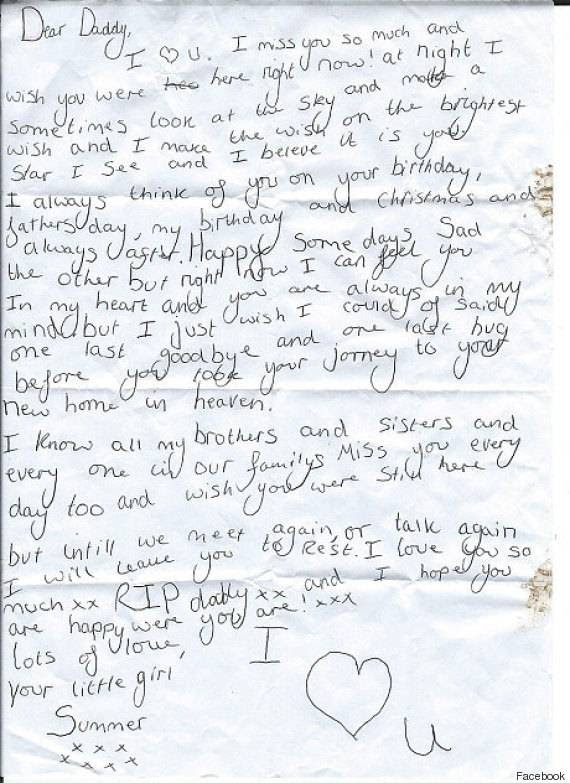 Dear Daddy,
I ♡ U. I miss you so much and
wish you were here right now! at night I
sometimes look at the sky and make a
wish and I make the wish on the brightest
star I see and I beleve it is you.
I always think of you on your birthday,
fathers day, my birthday and Christmas and
always after. Happy some days Sad
the other but right now I can feel you
In my heart and you are always in my
mind, but I just wish I could of saidy
one last goodbye and one last hug
before you took your jorney to your
new home in heaven.
I know all my brothers and sisters and
every one in our familys Miss you every
day too and wish you were still here
but untill we meet again, or talk again
I will leave you to Rest. I love you so
much xx RIP daddy xx and I hope you
are happy were you are! xxx
lots of love,
your little girl
Summer
x x x
x x x x
I
♡
U
Facebook